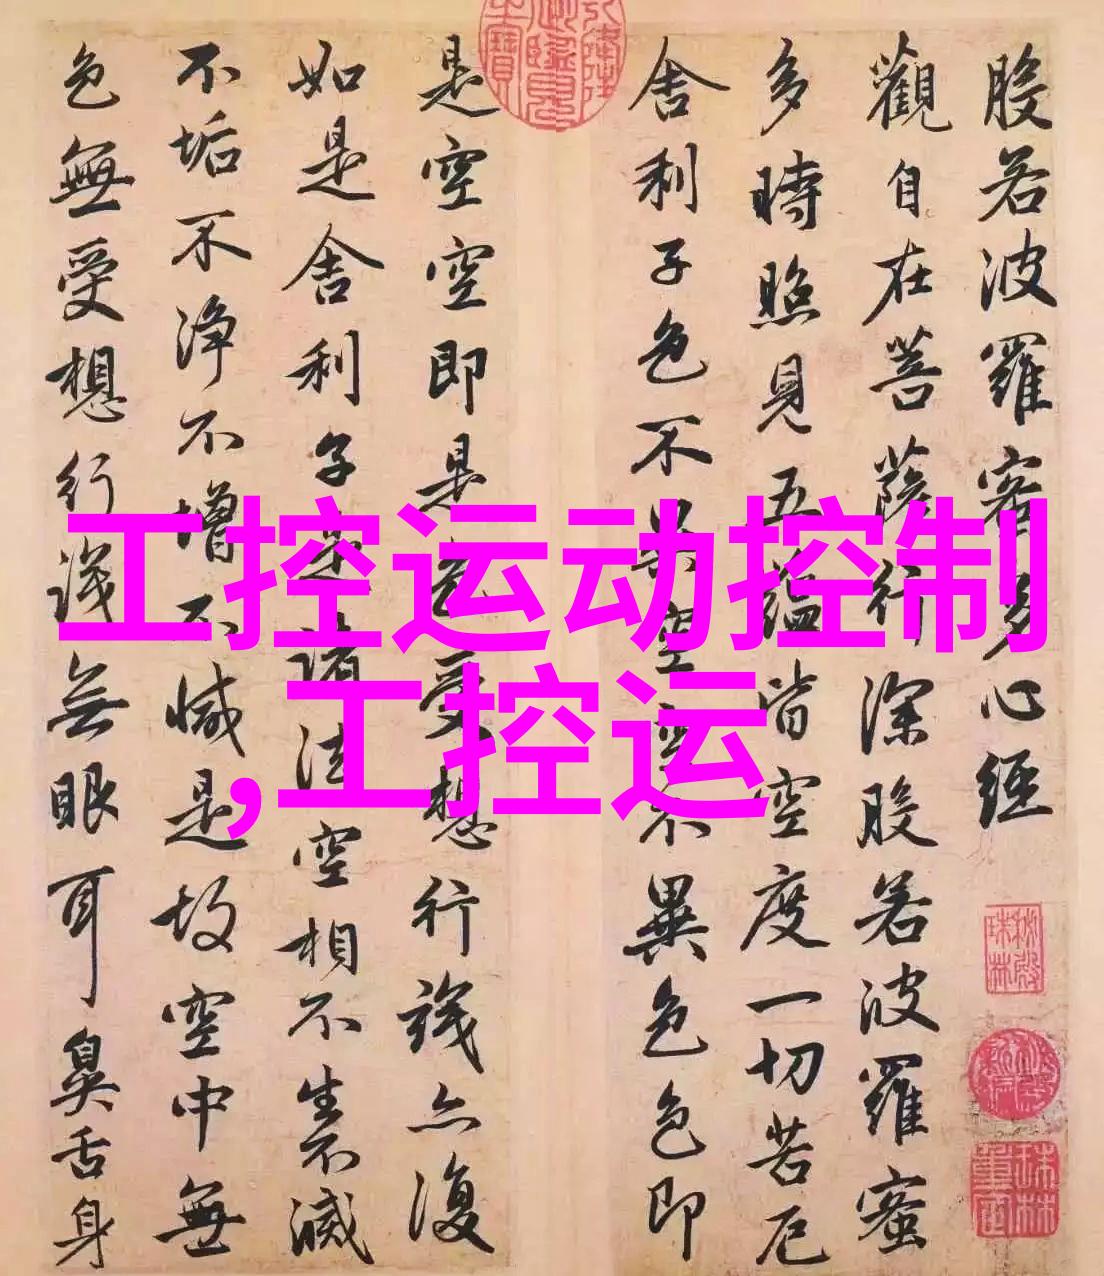 般若波羅蜜多心經
觀自在菩薩行深般若波羅蜜
多時照見五蘊皆空度一切苦厄
舍利子色不異空空不異色色即
是空空即是色受想行識亦復
如是舍利子是諸法空相不生不滅
不垢不淨不增不減是故空中無
色無受想行識無眼耳鼻舌身
工控运动控制
,工控运